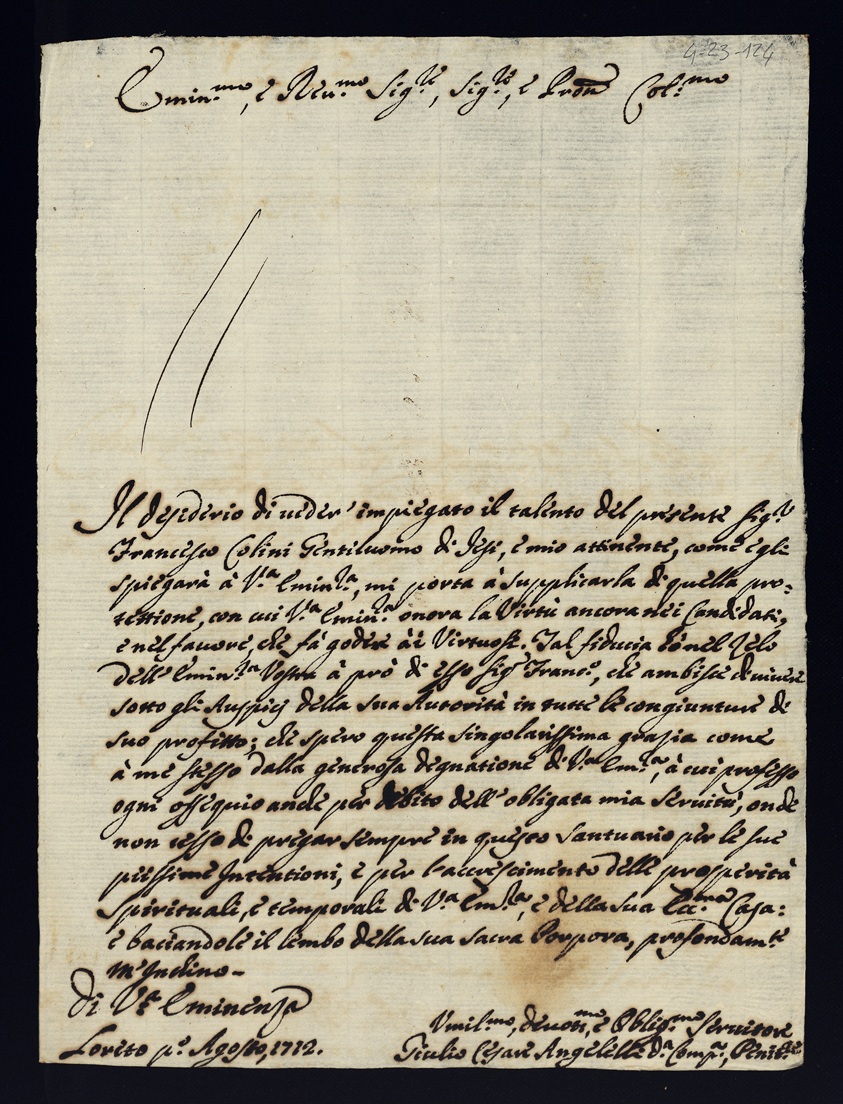 4-23-124
Emin.mo, e Reu.mo Sig.re, Sig.re, e Pron Col.mo
Il desiderio di ueder' impiegato il talento del presente Sig.r
Francesco Colini Gentiluomo di Jesi, e mio attinente, come egli
spiegarà à V.a Emin.za, mi porta à supplicarla di quella pro=
tettione, con cui V.a Emin.a onora la Virtù ancora nei Candidati,
e nel fauore, che fà godere ài Virtuosi. Tal fiducia hò nel Zelo
dell' Emin.za Vostra à prò di esso Sig.r Franc.o, che ambisce di uiuere
sotto gli Auspicij della sua Autorità in tutte le congiunture di
suo profitto; che spero questa singolarissima grazia come
à me stesso dalla generosa degnatione di V.a Em.za, à cui professo
ogni ossequio anche per debito dell' obligata mia seruitù, onde
non cesso di pregar sempre in questo Santuario per le sue
piissime Intentioni, e per l'accrescimento delle prosperità
spirituali, e temporali di V.a Em.za, e della sua Ecc.ma Casa:
e baciandole il lembo della sua sacra Porpora, profondam.te
m'Inchino-
di V.a Eminenza
Loreto p.o Agosto, 1712.
Vmil.mo, deuot.mo, e Oblig.mo Seruitore
Giulio Cesare Angelelli d.a Comp.a, Penit.re